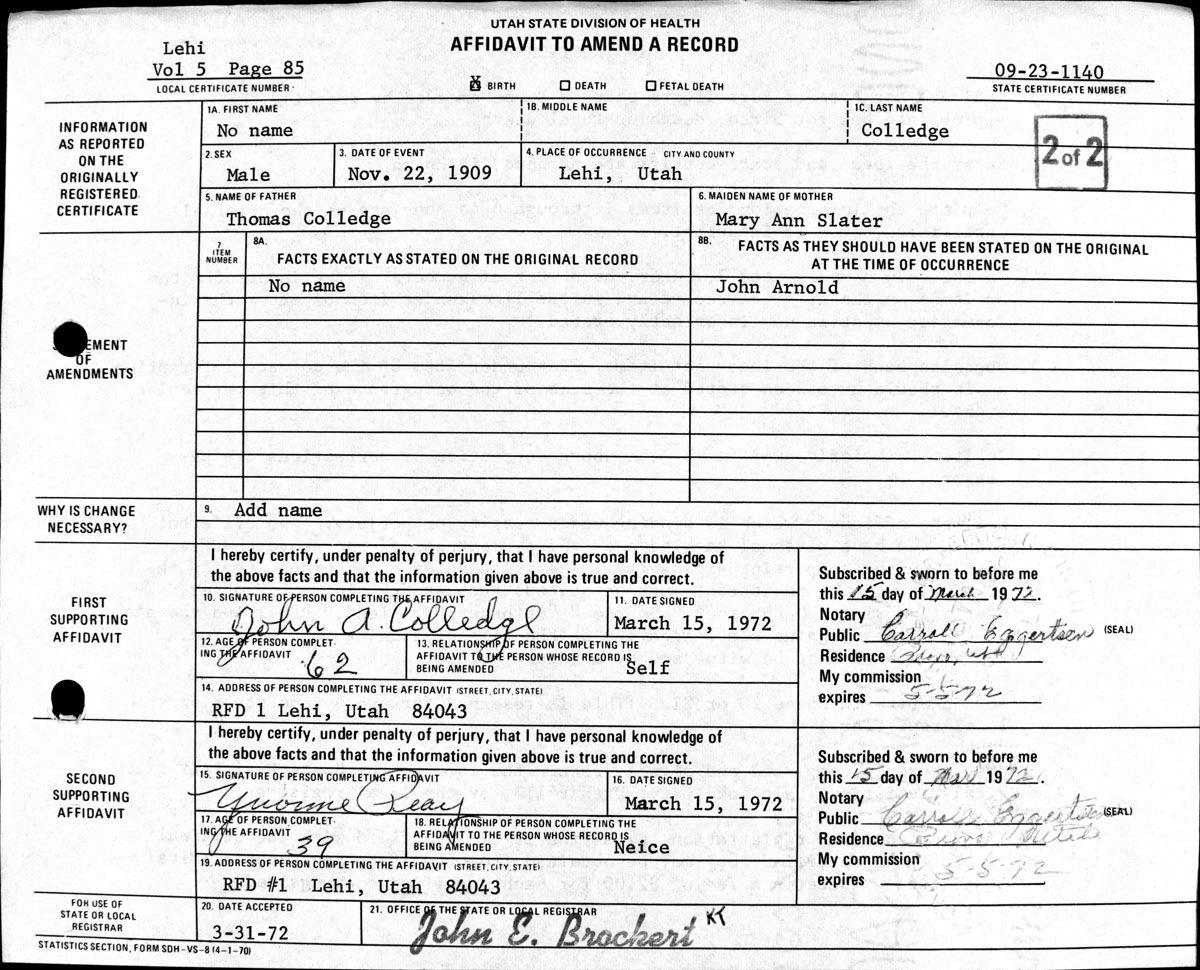 UTAH STATE DIVISION OF HEALTH
AFFIDAVIT TO AMEND A RECORD
Lehi
Vol 5 Page 85
LOCAL CERTIFICATE NUMBER
☒ BIRTH ☐ DEATH ☐ FETAL DEATH
09-23-1140
STATE CERTIFICATE NUMBER
INFORMATION
AS REPORTED
ON THE
ORIGINALLY
REGISTERED
CERTIFICATE
1A. FIRST NAME
No name
1B. MIDDLE NAME
1C. LAST NAME
Colledge
2 of 2
2. SEX
Male
3. DATE OF EVENT
Nov. 22, 1909
4. PLACE OF OCCURRENCE CITY AND COUNTY
Lehi, Utah
5. NAME OF FATHER
Thomas Colledge
6. MAIDEN NAME OF MOTHER
Mary Ann Slater
EMENT
OF
AMENDMENTS
7
ITEM
NUMBER
8A.
FACTS EXACTLY AS STATED ON THE ORIGINAL RECORD
8B.
FACTS AS THEY SHOULD HAVE BEEN STATED ON THE ORIGINAL
AT THE TIME OF OCCURRENCE
No name
John Arnold
WHY IS CHANGE
NECESSARY?
9. Add name
FIRST
SUPPORTING
AFFIDAVIT
I hereby certify, under penalty of perjury, that I have personal knowledge of
the above facts and that the information given above is true and correct.
10. SIGNATURE OF PERSON COMPLETING THE AFFIDAVIT
John A. Colledge
11. DATE SIGNED
March 15, 1972
12. AGE OF PERSON COMPLET-
ING THE AFFIDAVIT
62
13. RELATIONSHIP OF PERSON COMPLETING THE
AFFIDAVIT TO THE PERSON WHOSE RECORD IS
BEING AMENDED
Self
14. ADDRESS OF PERSON COMPLETING THE AFFIDAVIT (STREET, CITY, STATE)
RFD 1 Lehi, Utah 84043
Subscribed & sworn to before me
this 15 day of March 1972.
Notary
Public Carroll Eggertsen (SEAL)
Residence Provo, Utah
My commission
expires 5-5-72
SECOND
SUPPORTING
AFFIDAVIT
I hereby certify, under penalty of perjury, that I have personal knowledge of
the above facts and that the information given above is true and correct.
15. SIGNATURE OF PERSON COMPLETING AFFIDAVIT
Yvonne Peay
16. DATE SIGNED
March 15, 1972
17. AGE OF PERSON COMPLET-
ING THE AFFIDAVIT
39
18. RELATIONSHIP OF PERSON COMPLETING THE
AFFIDAVIT TO THE PERSON WHOSE RECORD IS
BEING AMENDED
Neice
19. ADDRESS OF PERSON COMPLETING THE AFFIDAVIT (STREET, CITY, STATE)
RFD #1 Lehi, Utah 84043
Subscribed & sworn to before me
this 15 day of Mar 1972.
Notary
Public Carroll Eggertsen (SEAL)
Residence Provo Utah
My commission
expires 5-5-72
FOR USE OF
STATE OR LOCAL
REGISTRAR
20. DATE ACCEPTED
3-31-72
21. OFFICE OF THE STATE OR LOCAL REGISTRAR
John E. Brockert KT
STATISTICS SECTION, FORM SDH-VS-8 (4-1-70)